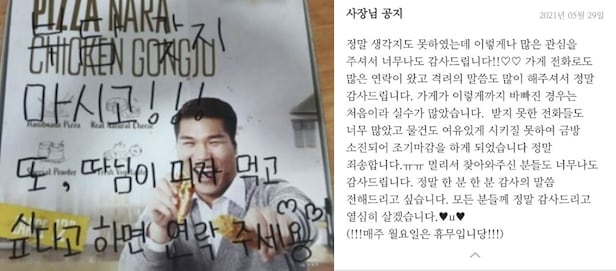 PIZZA NARA
CHICKEN GONGJU
부담 갖지
마시고!!!
Handmade Pizza Real Natural Cheese
Special Powder Fresh Vegetable
또, 따님이 피자 먹고
싶다고 하면 연락 주세용♡♡
사장님 공지
2021년 05월 29일
정말 생각지도 못하였는데 이렇게나 많은 관심을
주셔서 너무나도 감사드립니다!!♡♡ 가게 전화로도
많은 연락이 왔고 격려의 말씀도 많이 해주셔서 정말
감사드립니다. 가게가 이렇게까지 바빠진 경우는
처음이라 실수가 많았습니다. 받지 못한 전화들도
너무 많았고 물건도 여유있게 시키질 못하여 금방
소진되어 조기마감을 하게 되었습니다 정말
죄송합니다.ㅠㅠ 멀리서 찾아와주신 분들도 너무나도
감사드립니다. 정말 한 분 한 분 감사의 말씀
전해드리고 싶습니다. 모든 분들께 정말 감사드리고
열심히 살겠습니다.♥u♥
(!!!매주 월요일은 휴무입니당!!!)